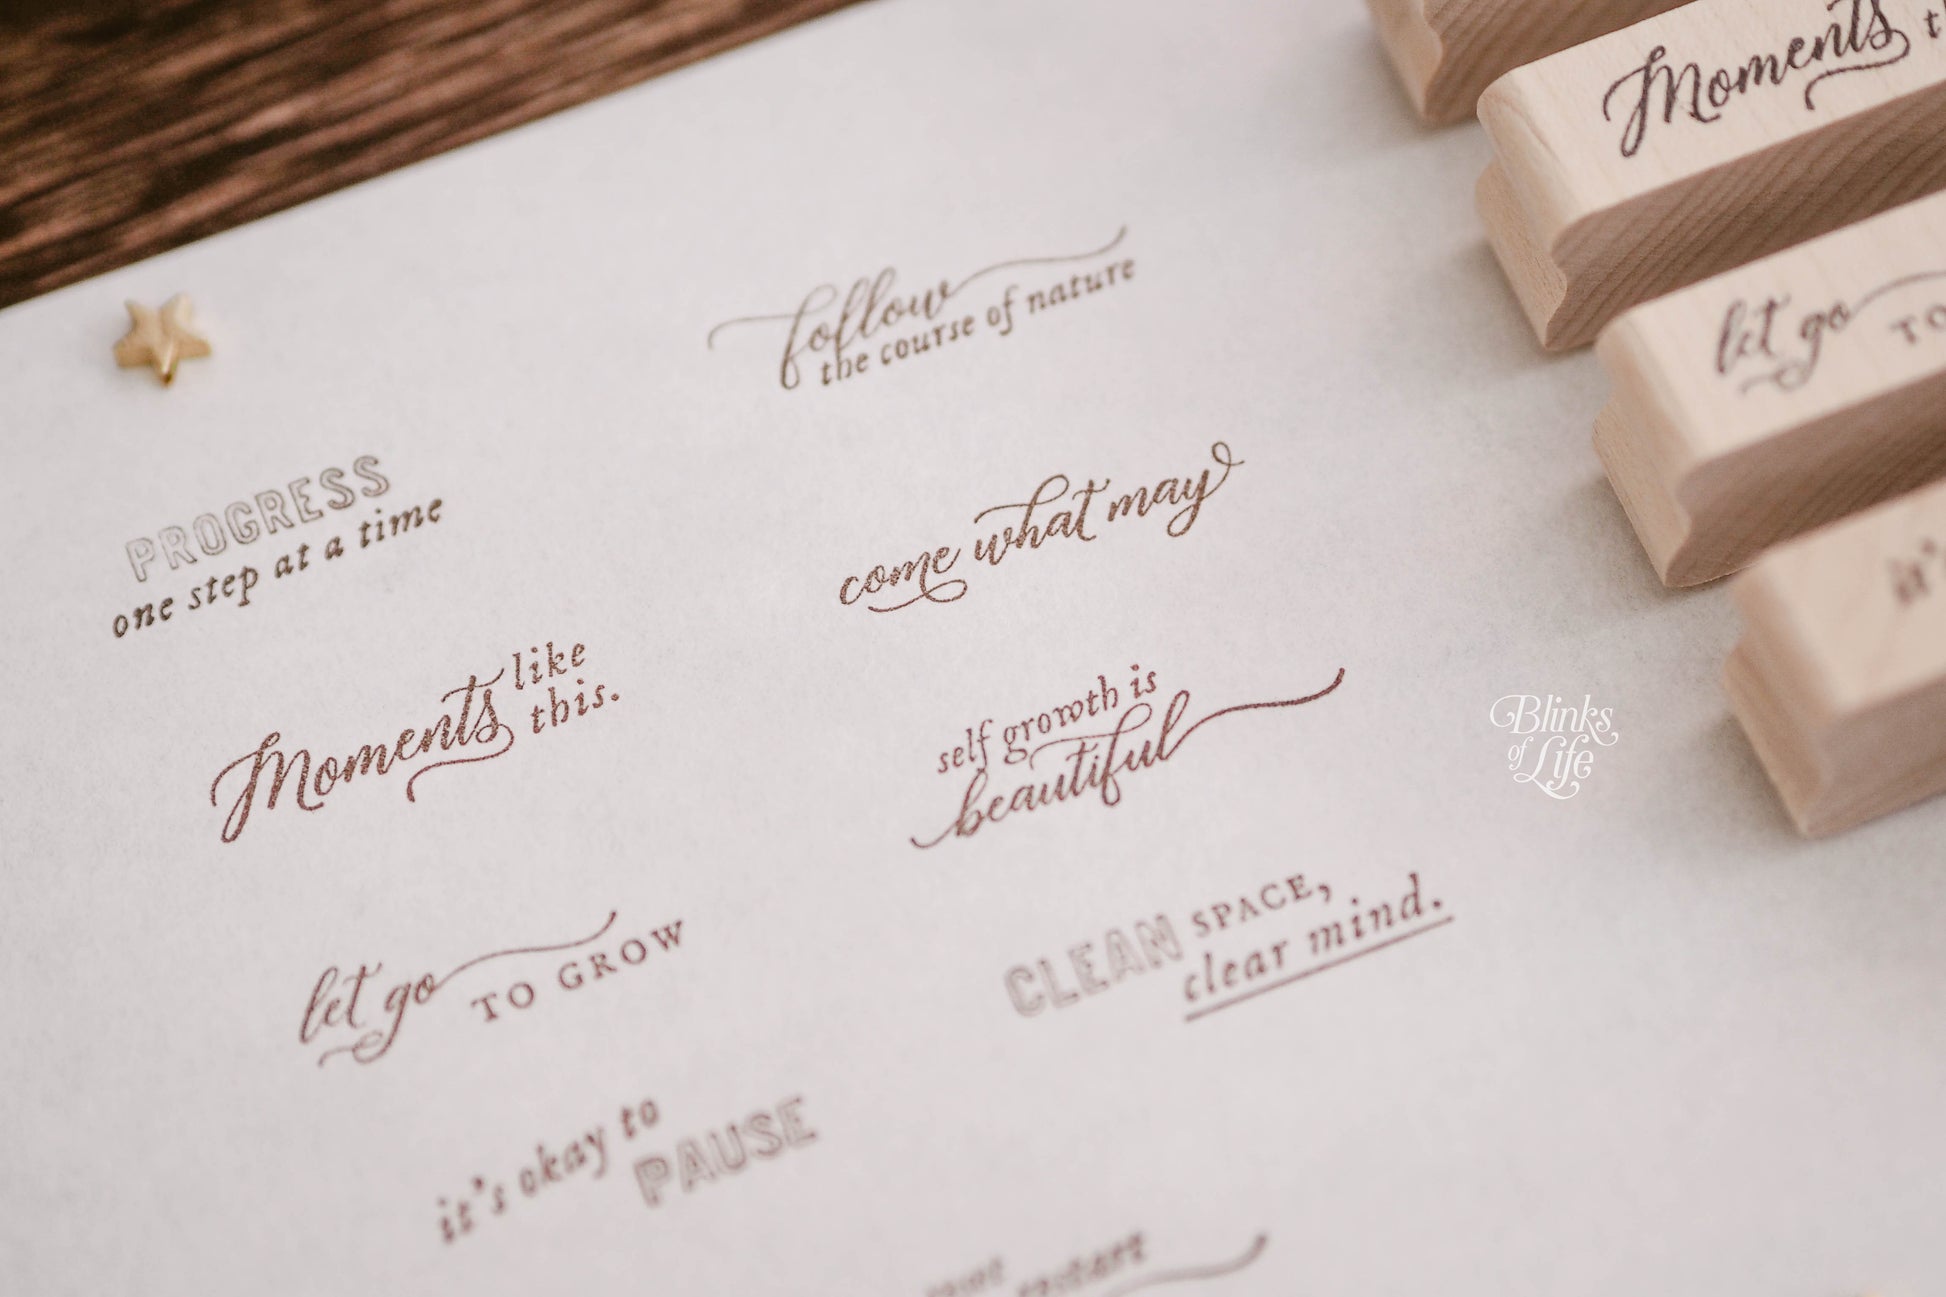 PROGRESS
one step at a time
Moments like
this.
let go TO GROW
it's okay to
PAUSE
follow
the course of nature
come what may
self growth is
beautiful
CLEAN SPACE,
clear mind.
Moments
let go TO
it's
Blinks
of Life